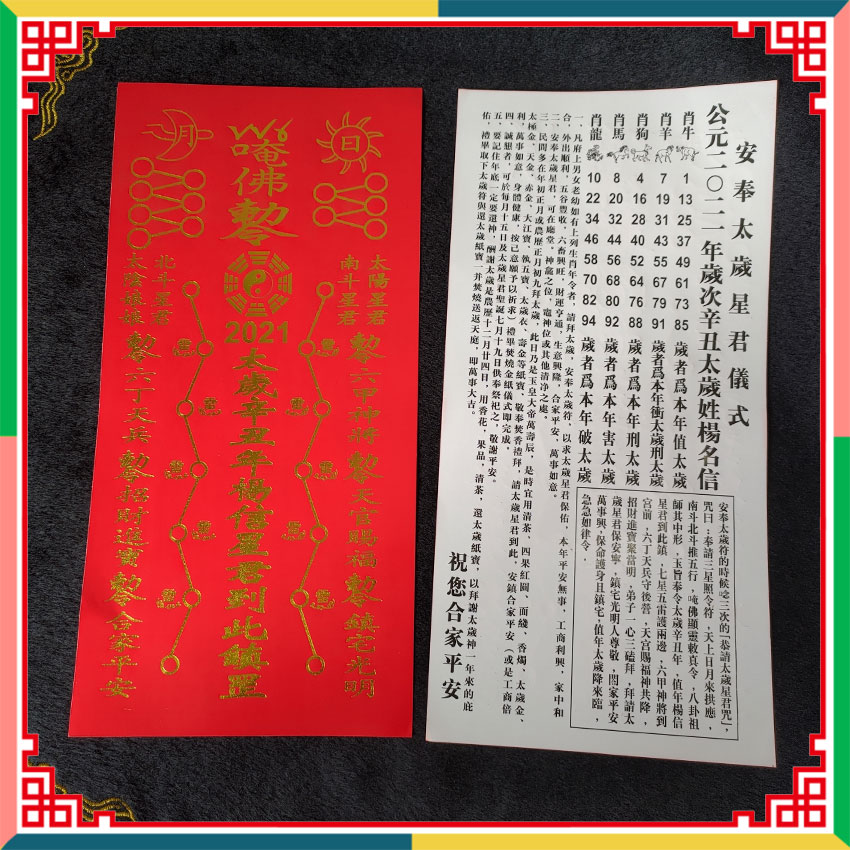 日
太陽星君
南斗星君
勅六甲神將 勅天官賜福 勅鎮宅光明
唵佛勅令
2021
太歲辛丑年楊信星君到此鎮
月
北斗星君
太陰娘娘
勅六丁天兵 勅招財進寶 勅合家平安
安奉太歲星君儀式
公元二〇二一年歲次辛丑太歲姓楊名信
肖牛 1 13 25 37 49 61 73 85 歲者爲本年值太歲
肖羊 7 19 31 43 55 67 79 91 歲者爲本年衝太歲刑太歲
肖狗 4 16 28 40 52 64 76 88 歲者爲本年刑太歲
肖馬 8 20 32 44 56 68 80 92 歲者爲本年害太歲
肖龍 10 22 34 46 58 70 82 94 歲者爲本年破太歲
安奉太歲符的時候唸三次的「恭請太歲星君咒」，
咒曰：奉請三星照令符，天上日月來拱應，
南斗北斗推五行，唵佛顯靈敕真令，八卦祖
師其中形，玉旨奉令太歲辛丑年，值年楊信
星君到此鎮，七星五雷護兩邊，六甲神將到
宮前，六丁天兵守後營，天官賜福神共降，
招財進寶聚當明，弟子一心三磕拜，拜請太
歲星君保安寧，鎮宅光明人尊敬，閤家平安
萬事興，保命護身且鎮宅，值年太歲降來臨，
急急如律令．
一、凡府上男女老幼如有上列生肖年令者，請拜太歲，安奉太歲符，以求太歲星君保佑，本年平安無事，工商利興，家中和
合，外出順利，五谷豐收，六畜興旺，財運亨通，生意興隆，合家平安，萬事如意。
二、安奉太歲星君，可在廳堂。神龕之位，竈神位或其他清净之處，
三、民間多在年初正月或農歷正月初九拜太歲，此日乃是玉皇大帝萬壽辰，是時宜用清茶、四果紅圓、面綫、香燭、太歲金、
太極金、天金、赤金、大江寶、執五寶、太歲衣、壽金等紙寶，敬奉焚香禮拜，請太歲星君到此，安鎮合家平安（或是工商倍
利，萬事如意，身體健康，按己意願予以祈求）禮畢焚燒金紙儀式即完成。
四、誠懇者，可於每月十五日及太歲星君聖誕七月十九日供奉祭祀之，敬謝平安。
五、要記住年底一定要還神，酬謝太歲是農歷十二月廿四日，用香花，果品，清茶，還太歲紙寶，以拜謝太歲神一年來的庇
佑，禮畢取下太歲符與還太歲紙寶一并焚燒送返天庭，即萬事大吉。
祝您合家平安